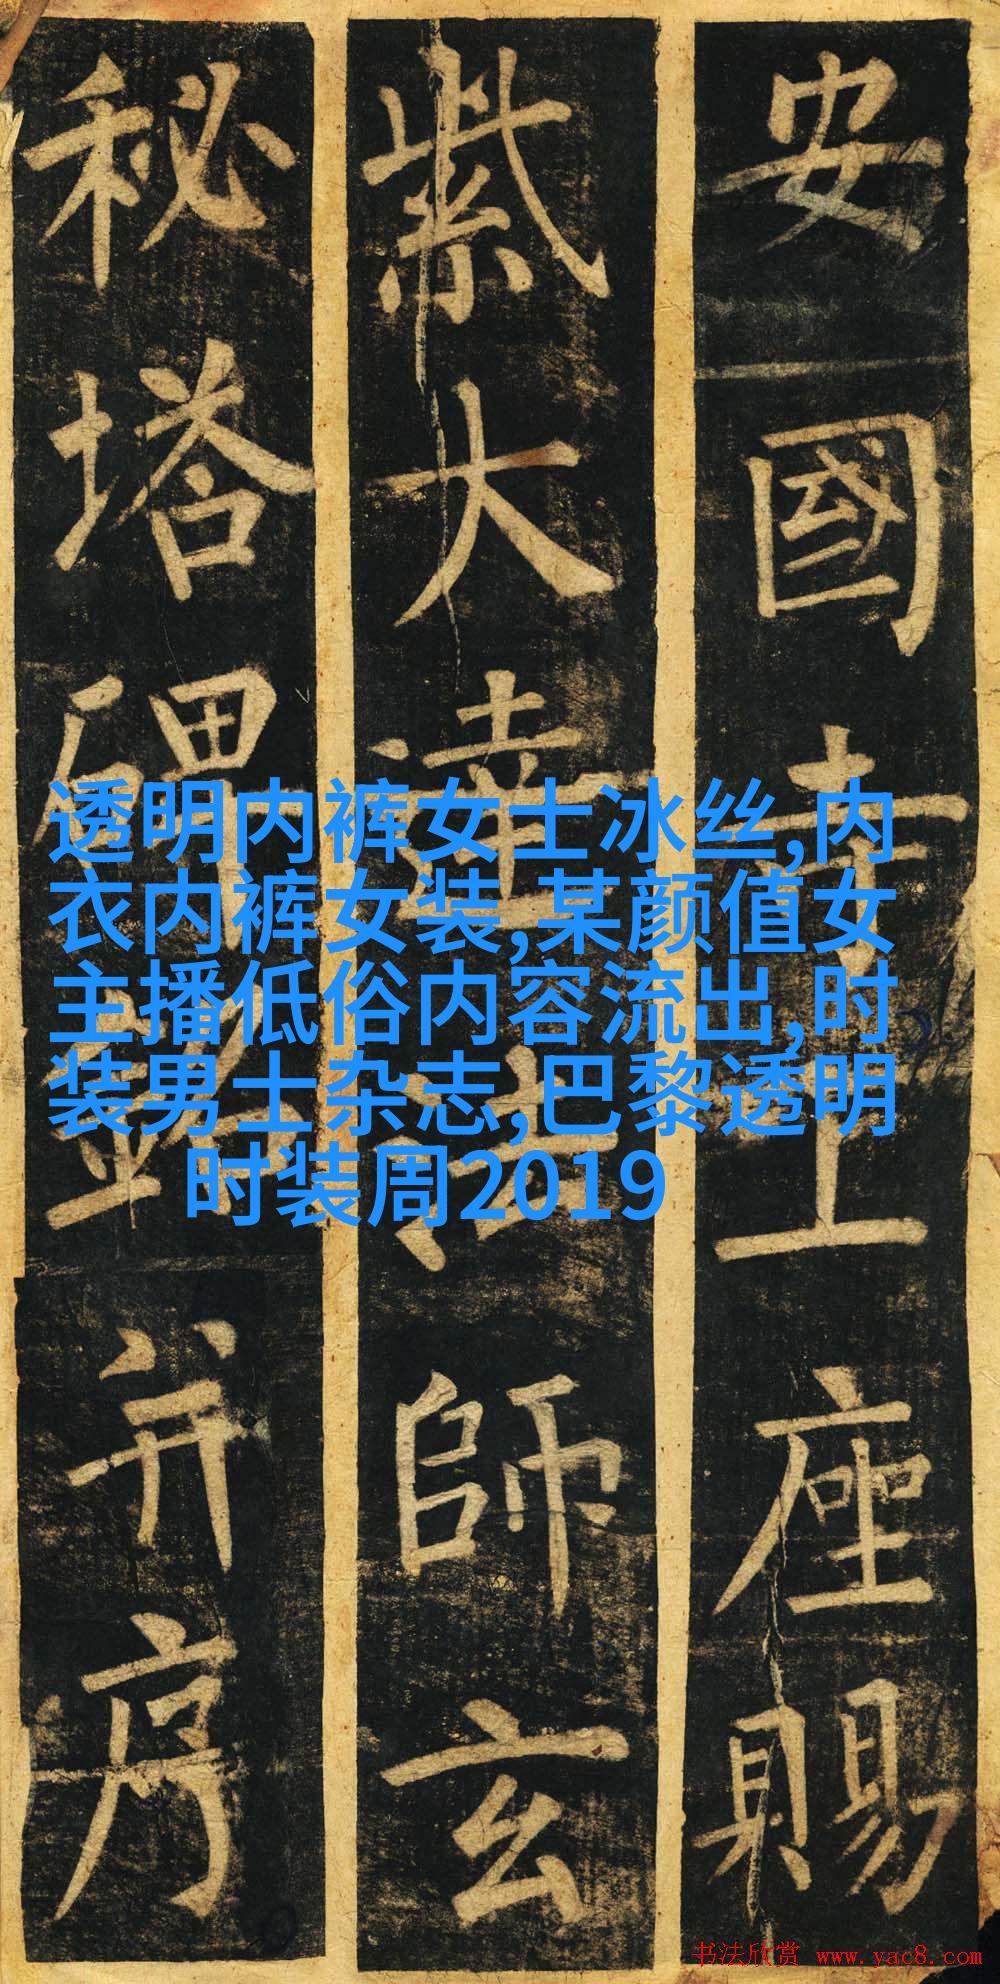 安國寺上座賜
紫大達法師玄
秘塔碑并序
透明内裤女士冰丝,内
衣内裤女装,某颜值女
主播低俗内容流出,时
装男士杂志,巴黎透明
时装周2019
书法欣赏 www.yac8.com